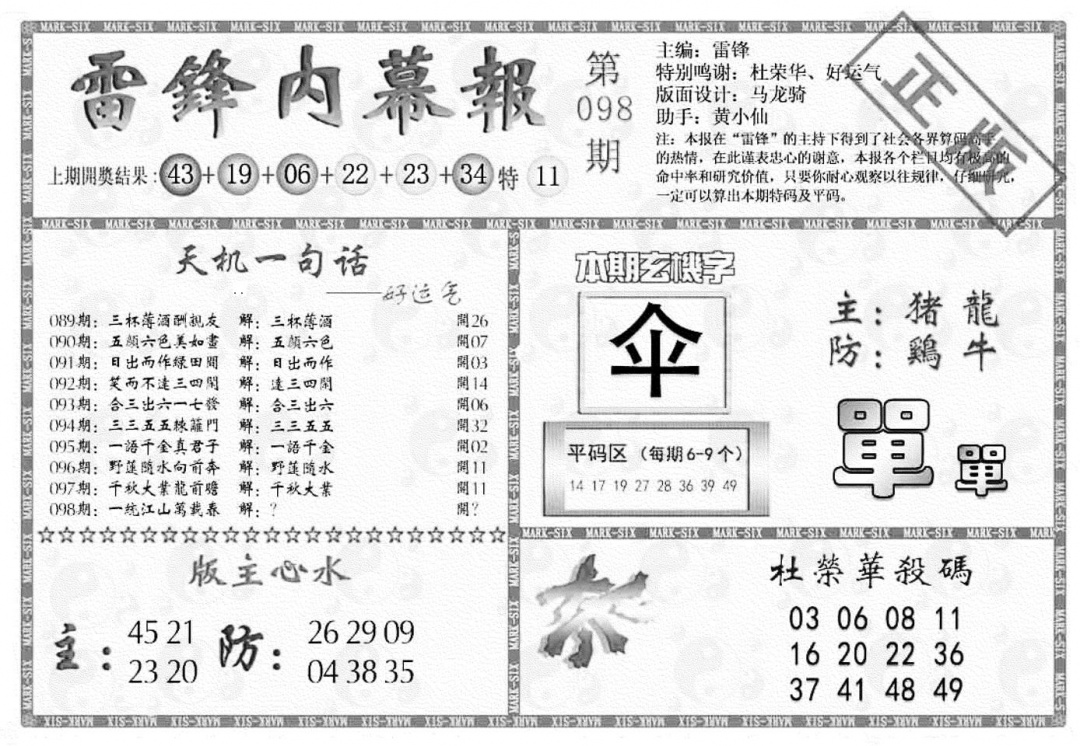 雷鋒内幕報
第
098
期
主编：雷锋
特别鸣谢：杜荣华、好运气
版面设计：马龙骑
助手：黄小仙
注：本报在“雷锋”的主持下得到了社会各界算码高手
的热情，在此谨表忠心的谢意，本报各个栏目均有极高的
命中率和研究价值，只要你耐心观察以往规律，仔细研究，
一定可以算出本期特码及平码。
正版
上期開獎结果：43+19+06+22+23+34特 11
天机一句话
——好运气
089期：三杯薄酒酬親友 解：三杯薄酒 開26
090期：五顔六色美如畫 解：五顔六色 開07
091期：日出而作緑田間 解：日出而作 開03
092期：笑而不達三四間 解：達三四間 開14
093期：合三出六一七發 解：合三出六 開06
094期：三三五五棘籬門 解：三三五五 開32
095期：一語千金真君子 解：一語千金 開02
096期：野蓮隨水向前奔 解：野蓮隨水 開11
097期：千秋大業龍前瞻 解：千秋大業 開11
098期：一统江山萬載春 解：？ 開？
☆☆☆☆☆☆☆☆☆☆☆☆☆☆☆☆☆☆☆☆☆☆☆
版主心水
主：
45 21
23 20
防：
26 29 09
04 38 35
本期玄機字
伞
平码区（每期6-9个）
14 17 19 27 28 36 39 49
主：猪 龍
防：鷄 牛
單 單
杀
杜榮華殺碼
03 06 08 11
16 20 22 36
37 41 48 49
MARK-SIX